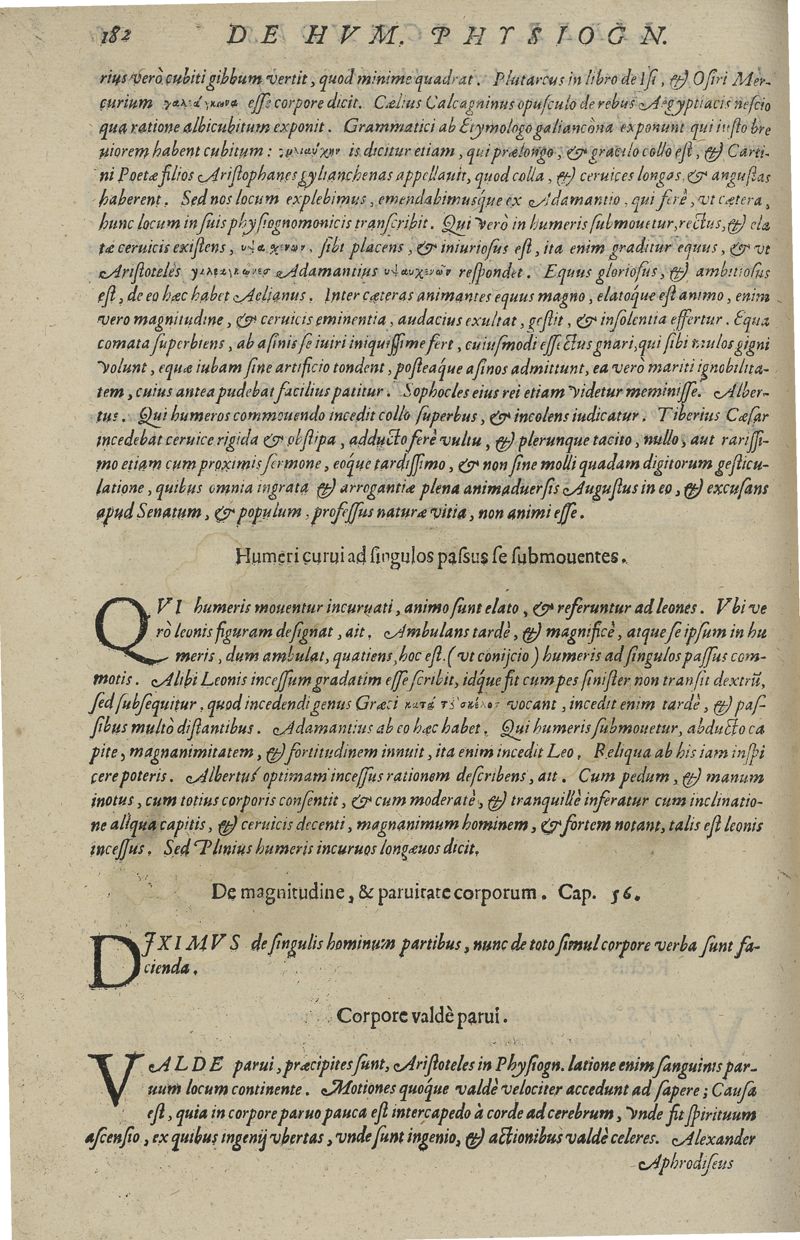 182 DE HVM. PHYSIOGN.
rius verò cubiti gibbum vertit, quod minime quadrat. Plutarcus in libro de Isi, & Osiri Mer-
curium esse corpore dicit. Cælius Calcagninus opusculo de rebus Aegyptiacis nescio
qua ratione albicubitum exponit. Grammatici ab Etymologo galiancòna exponunt qui iusto bre
uiorem habent cubitum: is dicitur etiam, qui prælongo, & gracilo collo est, & Carti-
ni Poetæ filios Aristophanes gylianchenas appellauit, quod colla, & ceruices longas, & angustas
haberent. Sed nos locum explebimus, emendabimusque ex Adamantio, qui ferè, vt cætera,
hunc locum in suis physiognomonicis transcribit. Qui verò in humeris submouetur, rectus, & ela
tæ ceruicis existens, sibi placens, & iniuriosus est, ita enim graditur equus, & vt
Aristoteles Adamantius respondet. Equus gloriosus, & ambitiosus
est, de eo hæc habet Aelianus. Inter cæteras animantes equus magno, elatoque est animo, enim
vero magnitudine, & ceruicis eminentia, audacius exultat, gestit, & insolentia effertur. Equa
comata superbiens, ab asinis se iniri iniquissime fert, cuiusmodi effectus gnari, qui sibi mulos gigni
volunt, equæ iubam sine artificio tondent, posteaque asinos admittunt, ea vero mariti ignobilita-
tem, cuius antea pudebat facilius patitur. Sophocles eius rei etiam videtur meminisse. Alber-
tus. Qui humeros commouendo incedit collo superbus, & incolens iudicatur. Tiberius Cæsar
incedebat ceruice rigida & obstipa, adducto ferè vultu, & plerunque tacito, nullo, aut rarissi-
mo etiam cum proximis sermone, eoque tardissimo, & non sine molli quadam digitorum gesticu-
latione, quibus omnia ingrata & arrogantiæ plena animaduersis Augustus in eo, & excusans
apud Senatum, & populum, professus naturæ vitia, non animi esse.
Humeri curui ad singulos passus se submouentes.
QVI humeris mouentur incuruati, animo sunt elato, & referuntur ad leones. Vbi ve
rò leonis figuram designat, ait. Ambulans tardè, & magnificè, atque se ipsum in hu
meris, dum ambulat, quatiens, hoc est (vt conijcio) humeris ad singulos passus com-
motis. Alibi Leonis incessum gradatim esse scribit, idque fit cum pes sinister non transit dextrū,
sed subsequitur, quod incedendi genus Græci vocant, incedit enim tardè, & pas-
sibus multò distantibus. Adamantius ab eo hæc habet. Qui humeris submouetur, abducto ca
pite, magnanimitatem, & fortitudinem innuit, ita enim incedit Leo. Reliqua ab his iam inspi
cere poteris. Albertus optimam incessus rationem describens, ait. Cum pedum, & manum
motus, cum totius corporis consentit, & cum moderatè, & tranquillè inferatur cum inclinatio-
ne aliqua capitis, & ceruicis decenti, magnanimum hominem, & fortem notant, talis est leonis
incessus. Sed Plinius humeris incuruos longæuos dicit.
De magnitudine, & paruitate corporum. Cap. 56.
DIXIMVS de singulis hominum partibus, nunc de toto simul corpore verba sunt fa-
cienda.
Corpore valdè parui.
VALDE parui, præcipites sunt, Aristoteles in Physiogn. latione enim sanguinis par-
uum locum continente. Motiones quoque valdè velociter accedunt ad sapere; Causa
est, quia in corpore paruo pauca est intercapedo à corde ad cerebrum, vnde fit spirituum
ascensio, ex quibus ingenij vbertas, vnde sunt ingenio, & actionibus valdè celeres. Alexander
Aphrodiseus